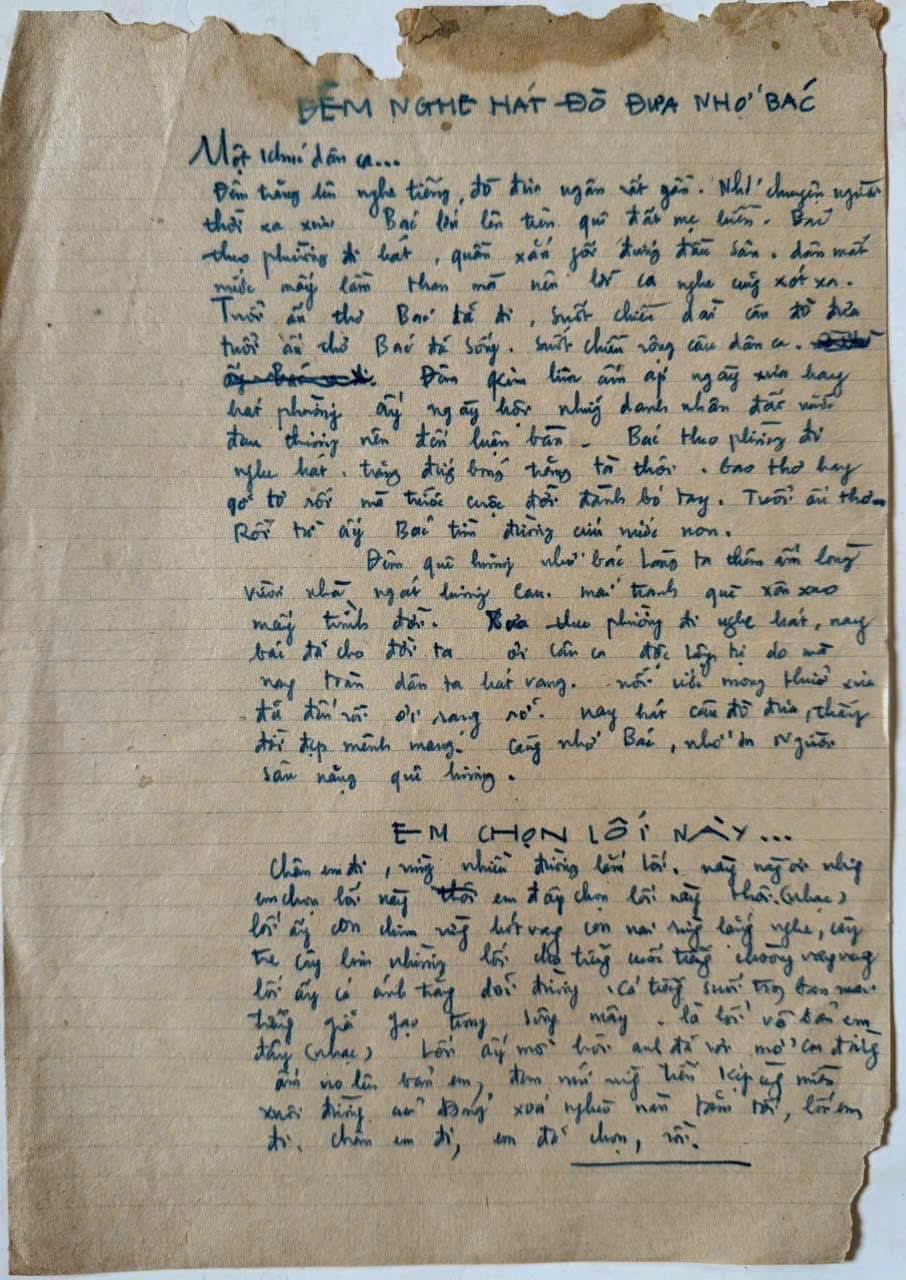 ĐÊM NGHE HÁT ĐÒ ĐƯA NHỚ BÁC
Một khúc dân ca...
Đêm trăng lên nghe tiếng đò đưa ngân rất gần. Nhớ chuyện người
thời xa xưa Bác lớn lên trên quê đất mẹ hiền. Bác
theo phường đi hát, quần xắn gối đứng đầu sân. dân mất
nước mấy lầm than mà nên lời ca nghe cũng xót xa.
Tuổi ấu thơ Bác đã đi, suốt chiều dài câu đò đưa
tuổi ấu thơ Bác đã sống. suốt chiều rộng câu dân ca.
ấy Bác Đêm Kim liên ấm áp ngày xưa hay
hát phường ấy ngày hội những danh nhân đất nước
đau thương nên đến luận bàn - Bác theo phường đi
nghe hát. trăng đứng bóng trăng tà thôi. bao thơ hay
gỡ tơ rối mà trước cuộc đời đành bó tay. Tuổi ấu thơ...
Rồi từ ấy Bác tìm đường cứu nước non.
Đêm quê hương nhớ bác làng ta thêm ấm lòng
vườn nhà ngát hương cau. mái tranh quê xôn xao
mấy trình đời. Xưa theo phường đi nghe hát, nay
bác đã cho đời ta ơi câu ca độc lập tự do mà
nay toàn dân ta hát vang. nỗi ước mong thuở xưa
đã đến rồi ơi rạng rỡ. nay hát câu đò đưa, thấy
đời đẹp mênh mang. càng nhớ Bác, nhớ ơn Người
sâu nặng quê hương.
EM CHỌN LỐI NÀY...
Chân em đi, rừng nhiều đường lắm lối. này người nhưng
em chọn lối này thôi em đây chọn lối này thôi. (nhạc)
lối ấy con chim rừng hót vang con nai rừng lắng nghe, cây
tre cây lim nhường lối cho tiếng cười tiếng chuông vang vang
lối ấy có ánh trăng dõi đường. Có tiếng suối trong đan mai
tiếng giã gạo trong sương mây. là lối về bản em
đây (nhạc) Lối ấy mồ hôi anh đã rơi mở con đường
ấm no lên bản em, đưa núi rừng tiến kịp cùng miền
xuôi đường xoá nghèo nàn tăm tối, lối em
đi. chân em đi, em đã chọn, rồi.